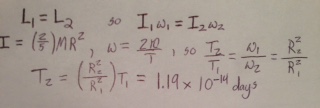 L₁ = L₂ so I₁ω₁ = I₂ω₂
I = (2/5) MR², ω = 2π/T, so T₂/T₁ = ω₁/ω₂ = R₂²/R₁²
T₂ = (R₂²/R₁²) T₁ = 1.19 × 10⁻¹⁴ days